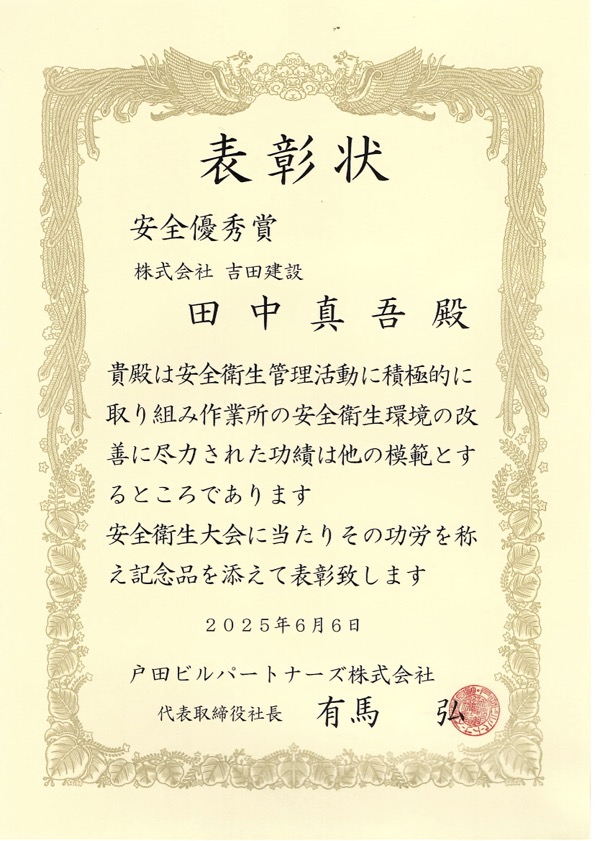 表彰状
安全優秀賞
株式会社 吉田建設
田中真吾殿
貴殿は安全衛生管理活動に積極的に
取り組み作業所の安全衛生環境の改
善に尽力された功績は他の模範とす
るところであります
安全衛生大会に当たりその功労を称
え記念品を添えて表彰致します
２０２５年６月６日
戸田ビルパートナーズ株式会社
代表取締役社長 有馬 弘